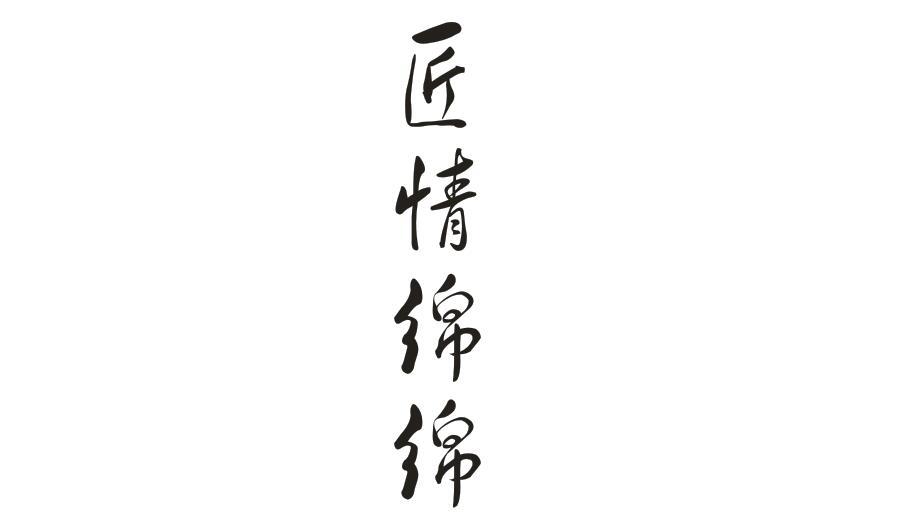 匠情绵绵